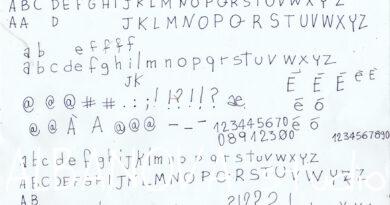 ABC DEFGHIJKLMNOPQRSTUVWXYZ
AA D JKLMNOPQRSTUVWXYZ
ab effff
abcdefghilmnopqrstuvwxyz
JK
É É É é È
@ @ @ # # . : ; ! !? !! ? æ é ó
@ @ À A @ @ @ — — – 123445670 é
08912300 1234567890
abcdefghijklmnopqrstuvwxyz
ABCDEFGHIJKLMNOPQRSTUVWXYZ
AB